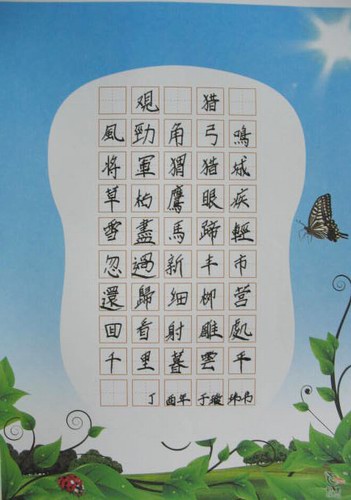 覌猎
風勁角弓鳴
將軍猬猎城
草枯鷹眼疾
雪盡馬蹄輕
忽過新丰市
還歸細柳營
回看射雕處
千里暮雲平
丁酉年于